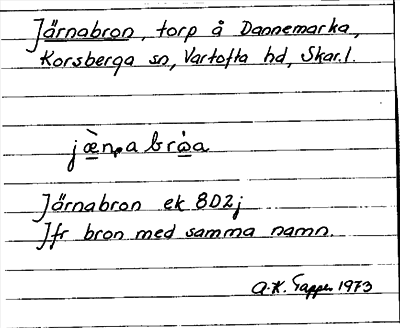 Järnabron, torp å Dannemarka,
Korsberga sn, Vartofta hd, Skar.l.
Järnabron ek 8D2j
Jfr bron med samma namn.
A.K. Tapper 1973